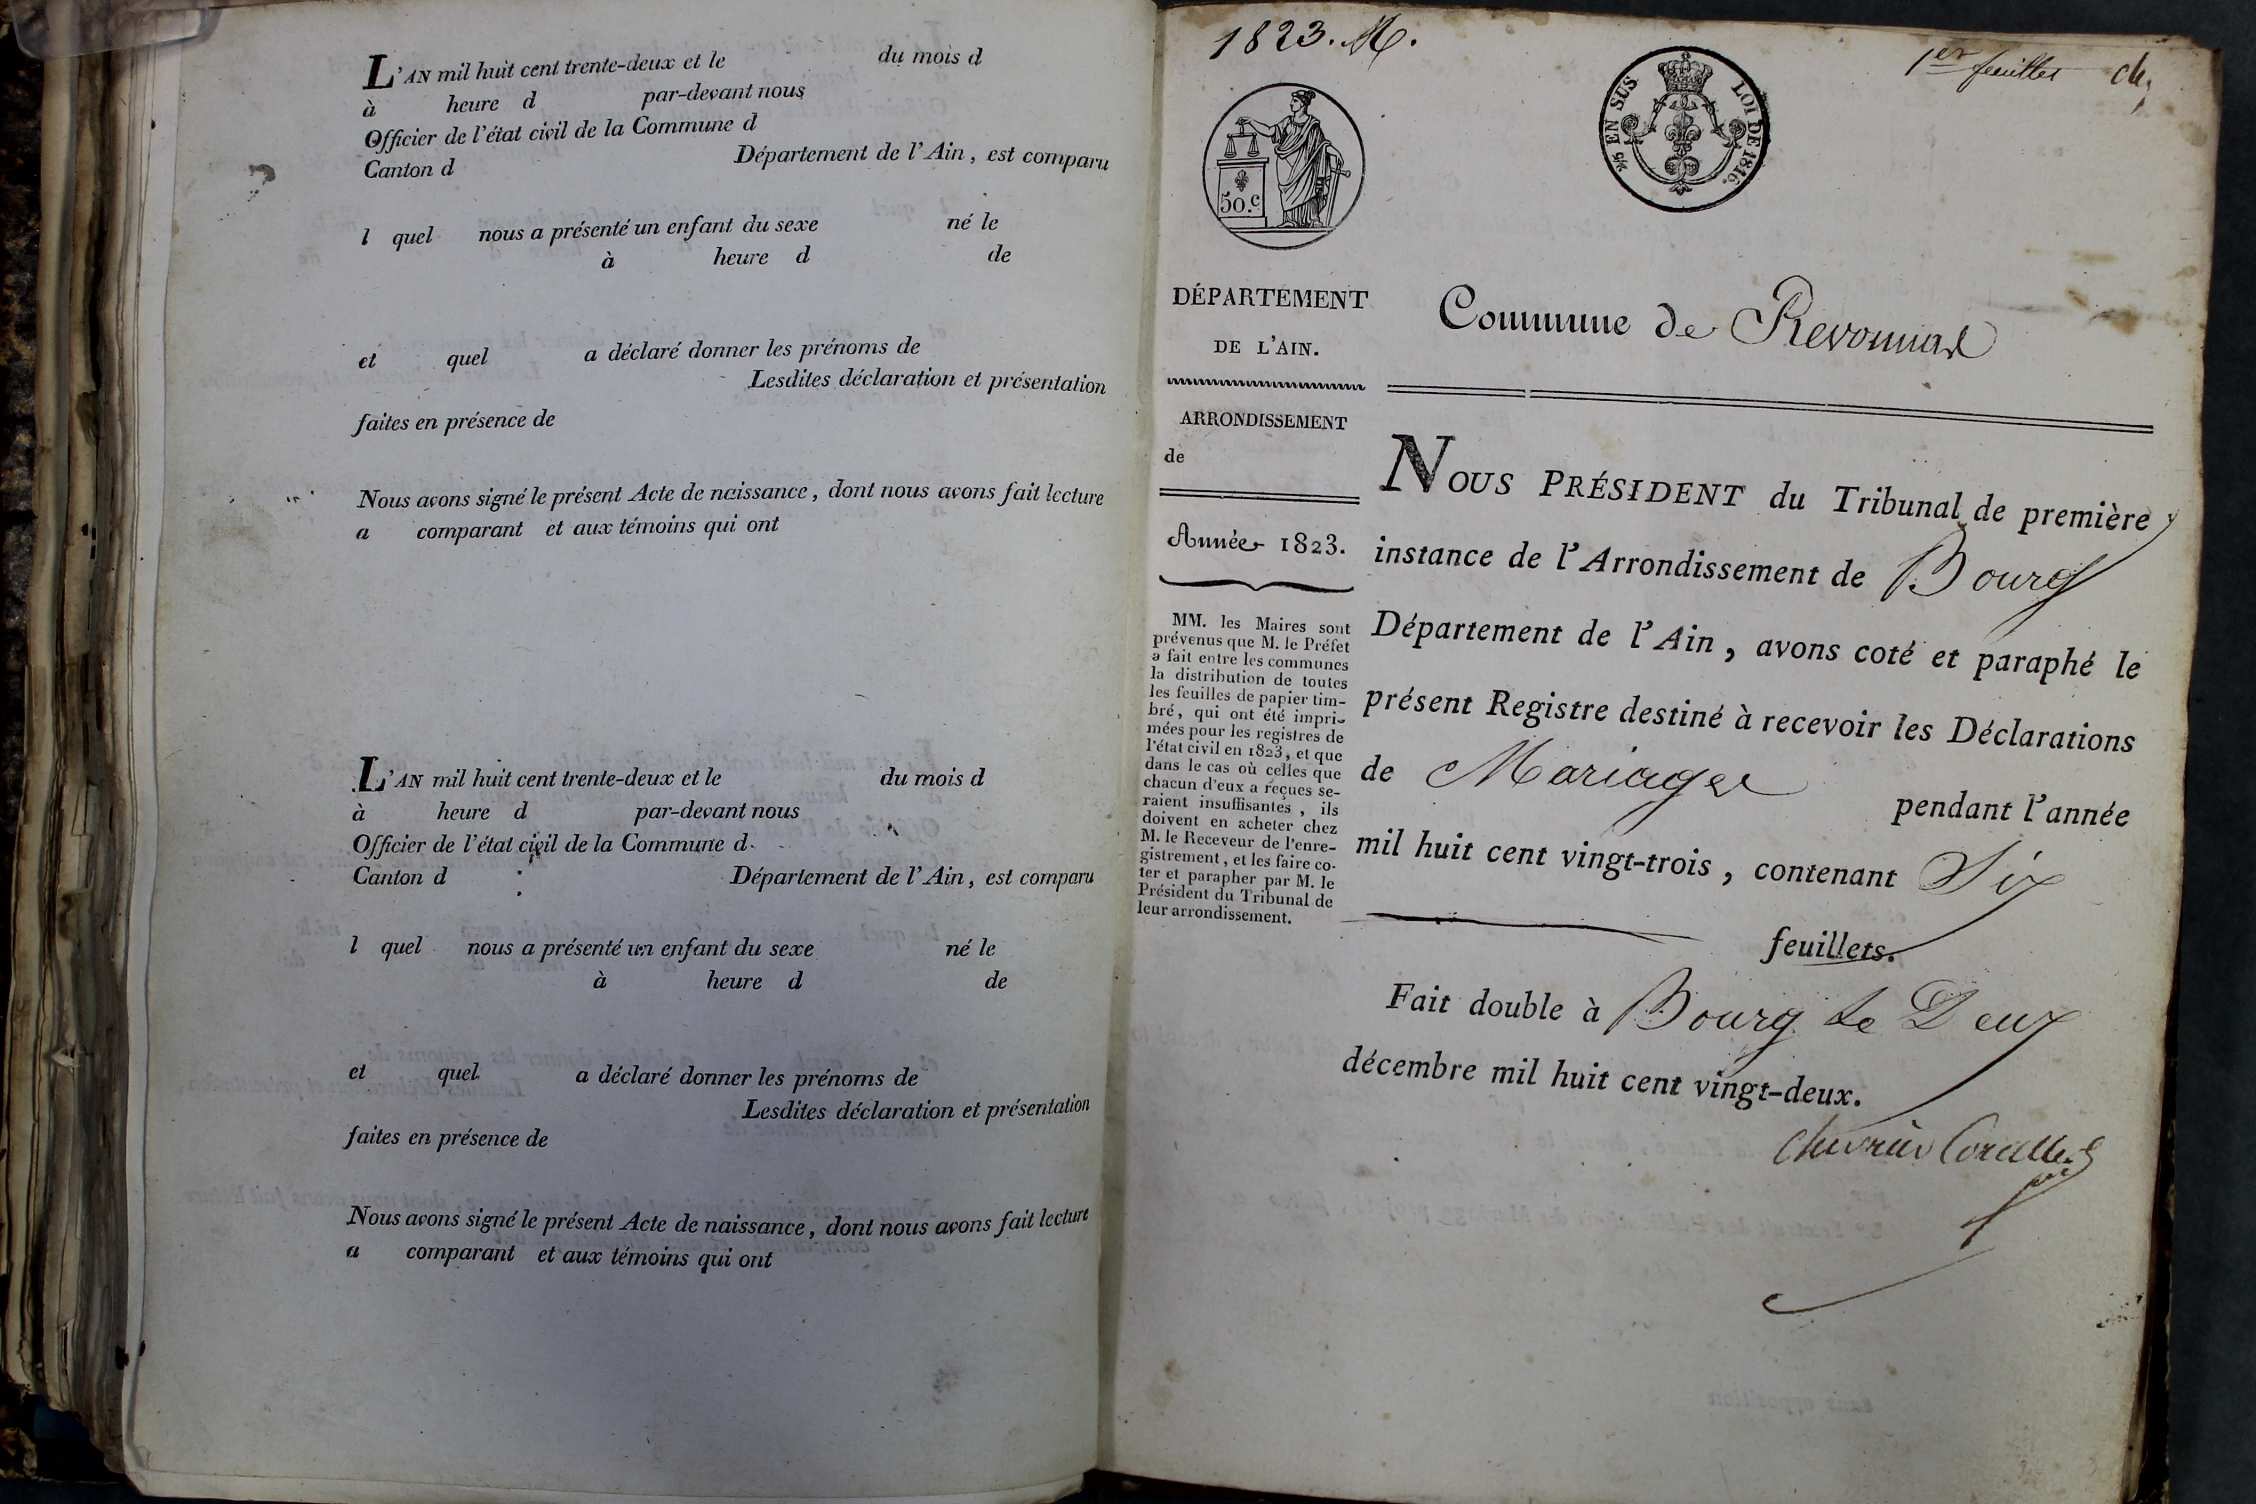 L'AN mil huit cent trente-deux et le du mois d
à heure d par-devant nous
Officier de l'état civil de la Commune d
Canton d Département de l'Ain, est comparu
l quel nous a présenté un enfant du sexe né le
à heure d de
et quel a déclaré donner les prénoms de
Lesdites déclaration et présentation
faites en présence de
Nous avons signé le présent Acte de naissance, dont nous avons fait lecture
a comparant et aux témoins qui ont
L'AN mil huit cent trente-deux et le du mois d
à heure d par-devant nous
Officier de l'état civil de la Commune d
Canton d Département de l'Ain, est comparu
l quel nous a présenté un enfant du sexe né le
à heure d de
et quel a déclaré donner les prénoms de
Lesdites déclaration et présentation
faites en présence de
Nous avons signé le présent Acte de naissance, dont nous avons fait lecture
a comparant et aux témoins qui ont
1823. M.
1er feuillet ch.
50.c
EN SUS LOI DE 1816.
DÉPARTEMENT
DE L'AIN.
ARRONDISSEMENT
de
Année 1823.
MM. les Maires sont
prévenus que M. le Préfet
a fait entre les communes
la distribution de toutes
les feuilles de papier tim-
bré, qui ont été impri-
mées pour les registres de
l'état civil en 1823, et que
dans le cas où celles que
chacun d'eux a reçues se-
raient insuffisantes, ils
doivent en acheter chez
M. le Receveur de l'enre-
gistrement, et les faire co-
ter et parapher par M. le
Président du Tribunal de
leur arrondissement.
Commune de Revonnas
NOUS PRÉSIDENT du Tribunal de première
instance de l'Arrondissement de Bourg
Département de l'Ain, avons coté et paraphé le
présent Registre destiné à recevoir les Déclarations
de Mariages pendant l'année
mil huit cent vingt-trois, contenant Six
feuillets.
Fait double à Bourg le Deux
décembre mil huit cent vingt-deux.